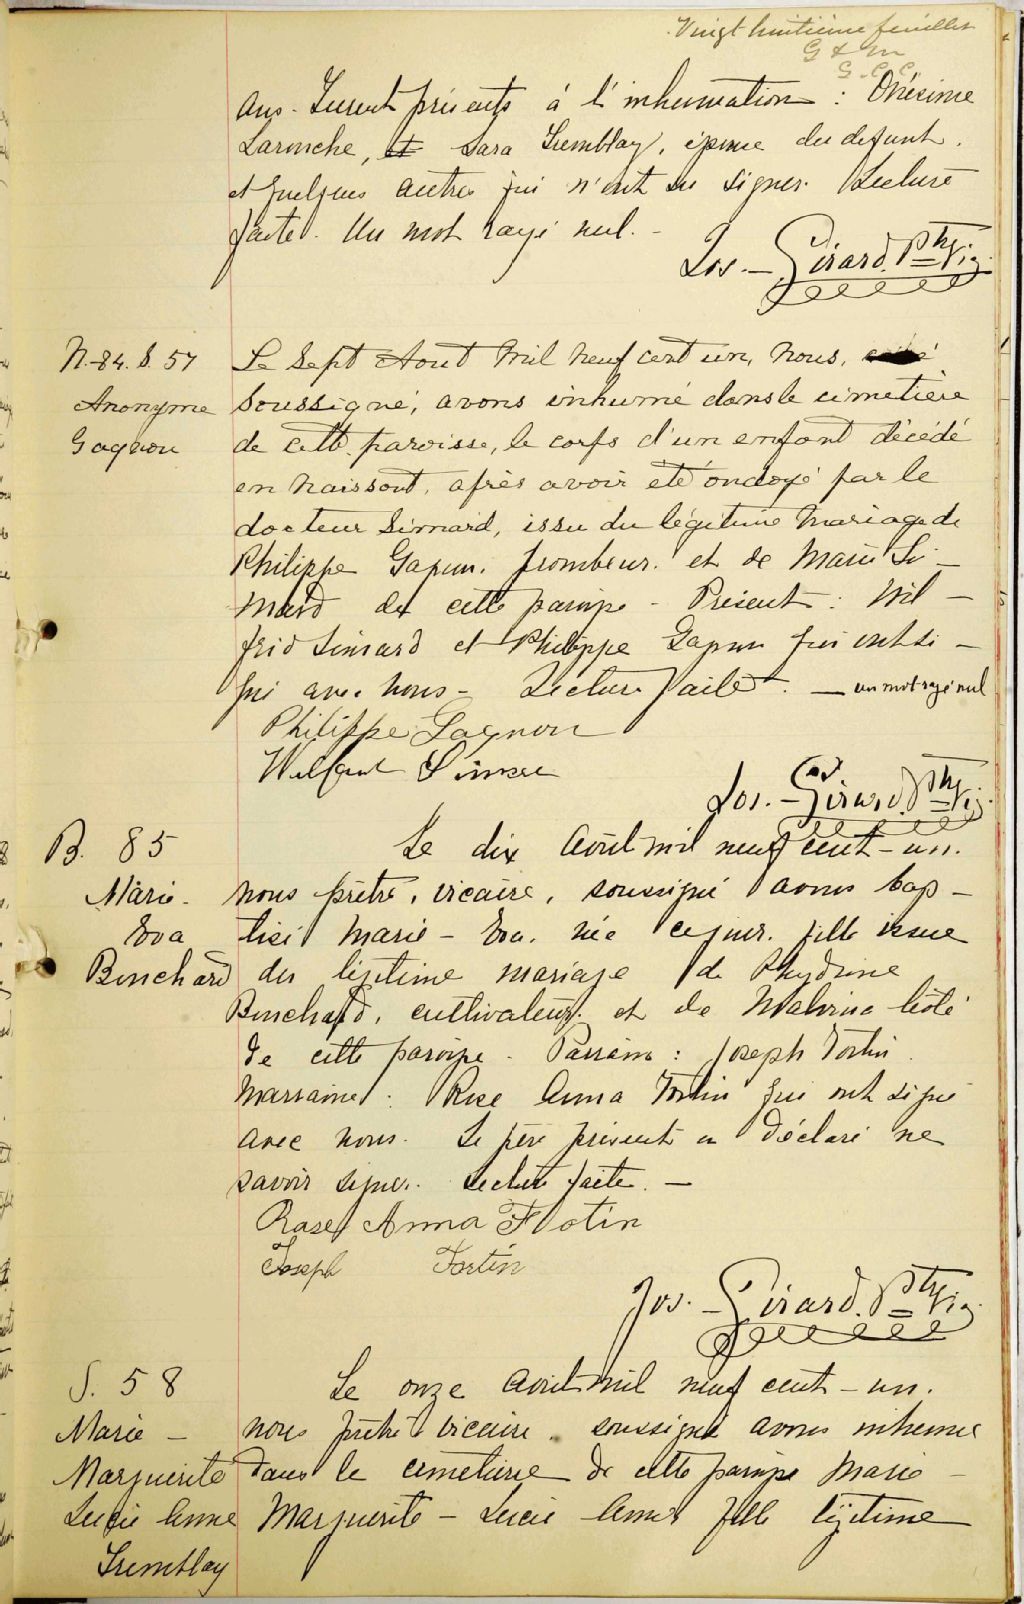 Vingt huitième feuillet
G & m
G. C. C.
ans. Furent présents à l'inhumation : Onésime
Larouche, et Sara Tremblay, épouse du defunt.
et quelques autres qui n'ont su signer. Lecture
faite. Un mot rayé nul. -
Jos. - Girard Ptre Vic.
N.-84. S. 57
Anonyme
Gagnon
Le sept Aout mil neuf cent un, nous,
soussigné, avons inhumé dans le cimetière
de cette paroisse, le corps d'un enfant décédé
en naissant, après avoir été ondoyé par le
docteur Simard, issu du légitime mariage de
Philippe Gagnon, et de Marie Si-
mard de cette paroisse - Présent : Wil-
frid Simard et Philippe Gagnon qui ont si-
gné avec nous - Lecture faite. - un mot rayé nul
Philippe Gagnon
Jos. - Girard Ptre Vic.
B. 85
Marie-
Eva
Bouchard
Le dix Août mil neuf cent-un.
nous prêtre, vicaire, soussigné avons bap-
tisé Marie-Eva, née ce jour, fille issue
du légitime mariage de
Bouchard, cultivateur, et de Malvina Côté
de cette paroisse. Parrain : Joseph Fortin.
Marraine : Rose Anna Fortin qui ont signé
avec nous. Le père présent a déclaré ne
savoir signer. Lecture faite. -
Rose Anna Flotin
Joseph Fortin
Jos. - Girard. Ptre Vic.
S. 58
Marie -
Marguerite
Lucie Anne
Tremblay
Le onze Août mil neuf cent-un.
nous prêtre vicaire soussigné avons inhumé
dans le cimetière de cette paroisse Marie-
Marguerite - Lucie Anne fille légitime